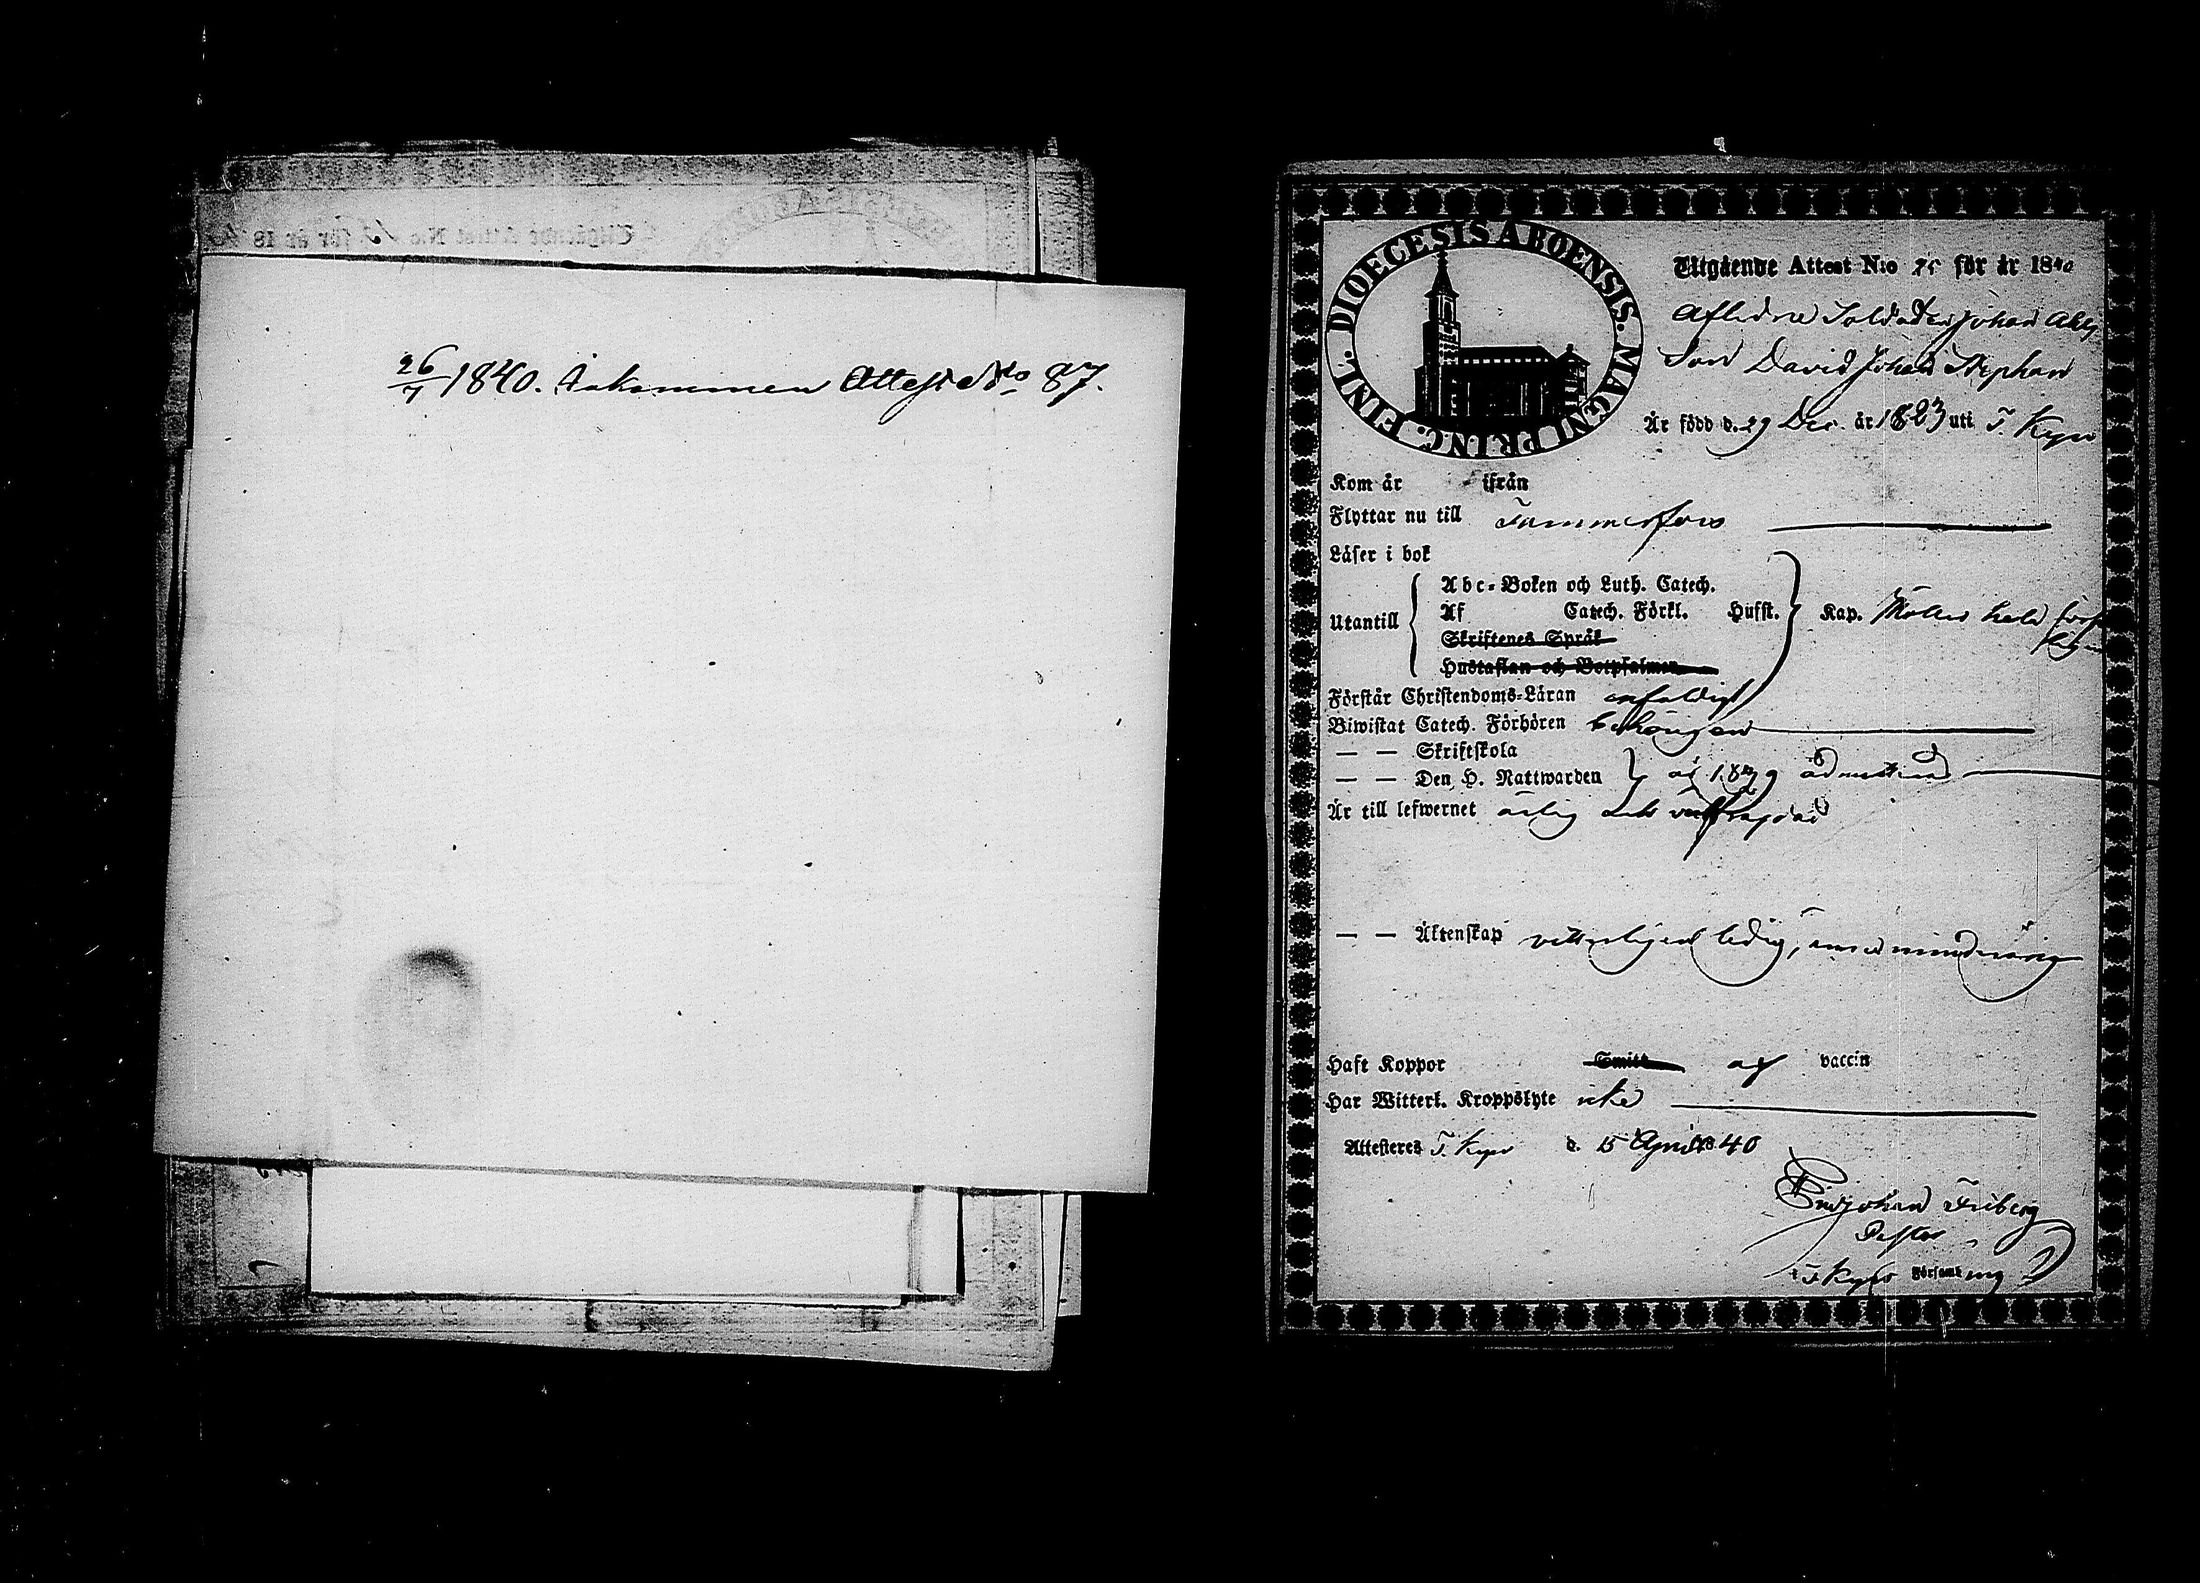 26/7 1840. Inkommen Attest No 87.
DIOECESIS ABOENSIS. MAGNI PRINC. FINL.
Utgående Attest N:o 25 för år 1840
Aflidne Soldaten Johan
Son David Johan Stephan
Är född d. 29 Dec. år 1823 uti T. Kyro
Kom år ifrån
Flyttar nu till Tammerfors
Läser i bok
Utantill
Abc-Boken och Luth. Catech.
Af Catech. Förkl. Husst. Kap.
Skriftenes Språk
Hustaflan och Botpsalmen
Förstår Christendoms-Läran enfaldigt
Biwistat Catech. Förhören behörigen
— — Skriftskola
— — Den H. Nattwarden år 1839 admitterad
Är till lefwernet ärlig och välfrägdad
— — Äktenskap vetterligen ledig, emed minderårig
Haft Koppor Smitt af vaccin
Har Witterl. Kroppslyte icke
Attesteres T. Kyro d. 15 April 1840
Johan Friberg
Pastor
i T. Kyro Församling